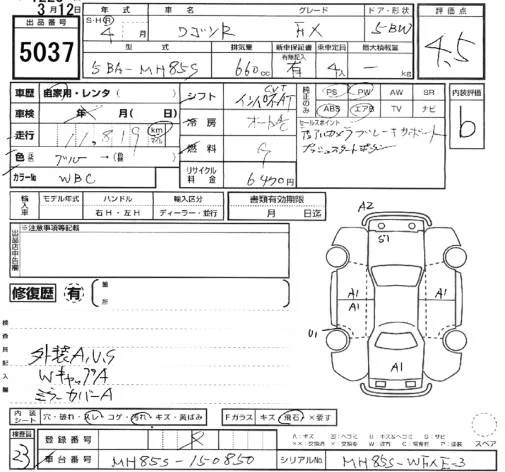 3月12日
出品番号
5037
年式 車名 グレード ドア・形状
S・H・R 4 月 ワゴンR FX 5-BW
型式 排気量 新車保証書 乗車定員 最大積載量
有無記入
5BA-MH85S 660cc 有 4人 - kg
評価点
4.5
車歴 自家用・レンタ( )
車検 年 月( 日)
走行 11,819 km マイル
色
カラーNo. WBC
シフト CVT
冷房 オートAC
燃料 G
リサイクル料金 6490円
純正のみ
PS PW AW SR
ABS エアB TV ナビ
セールスポイント
プッシュスタートボタン
内装評価
b
輸入車
モデル年式 ハンドル 輸入区分
右H・左H ディーラー・並行
書類有効期限
月 日迄
出品店申告欄
※注意事項等記載
修復歴 有 箇所
検査員記入欄
外装A,U,S
WキャップA
ミラーカバーA
A2
S1
A1 A1
A1
U1
A1
内装シート 穴・破れ・スレ・コゲ・汚れ・キズ・黄ばみ
Fガラス キズ 飛石 ×要す
スペア
検査員
23
登録番号 R
車台番号 MH85S-150850
シリアルNo. MH85S-WFXE-3